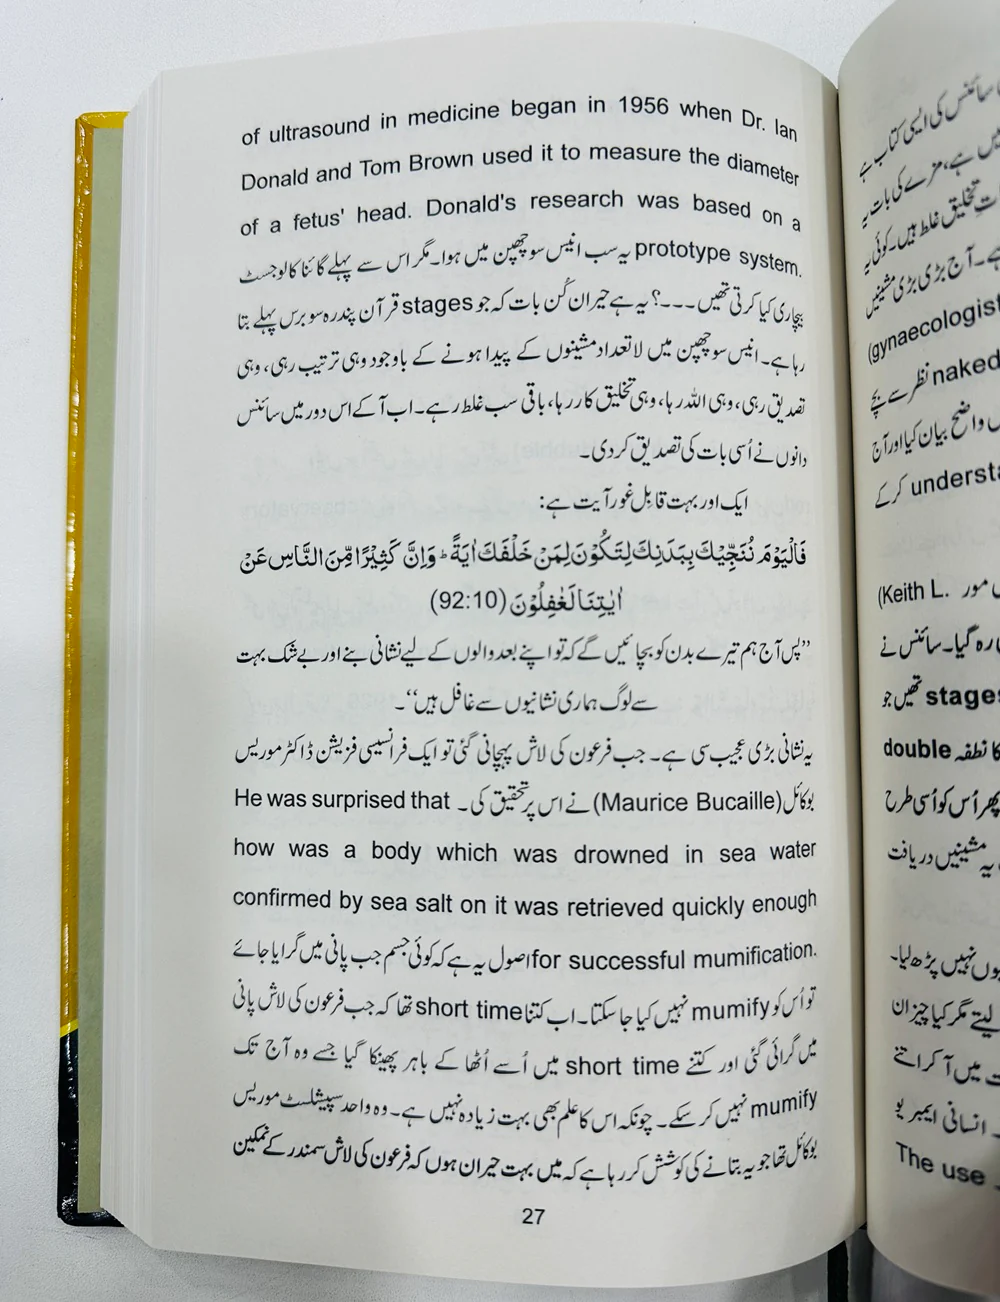 of ultrasound in medicine began in 1956 when Dr. Ian
Donald and Tom Brown used it to measure the diameter
of a fetus' head. Donald's research was based on a
prototype system. یہ سب انیس سو چھپن میں ہوا۔ مگر اس سے پہلے گائناکالوجسٹ
بیچاری کیا کرتی تھیں۔۔۔؟ یہ ہے حیران کُن بات کہ جو stages قرآن پندرہ سو برس پہلے بتا
رہا ہے۔ انیس سو چھپن میں لاتعداد مشینوں کے پیدا ہونے کے باوجود وہی ترتیب رہی، وہی
تصدیق رہی، وہی اللہ رہا، وہی تخلیق کار رہا، باقی سب غلط رہے۔ اب آ کے اس دور میں سائنس
دانوں نے اُسی بات کی تصدیق کر دی۔
ایک اور بہت قابلِ غور آیت ہے:
فَالْیَوْمَ نُنَجِّیْكَ بِبَدَنِكَ لِتَكُوْنَ لِمَنْ خَلْفَكَ اٰیَةً ؕ وَاِنَّ كَثِیْرًا مِّنَ النَّاسِ عَنْ
اٰیٰتِنَا لَغٰفِلُوْنَ (92:10)
’’پس آج ہم تیرے بدن کو بچائیں گے کہ تو اپنے بعد والوں کے لیے نشانی بنے اور بے شک بہت
سے لوگ ہماری نشانیوں سے غافل ہیں‘‘۔
یہ نشانی بڑی عجیب سی ہے۔ جب فرعون کی لاش پہچانی گئی تو ایک فرانسیسی فزیشن ڈاکٹر موریس
بوکائل (Maurice Bucaille) نے اس پر تحقیق کی۔ He was surprised that
how was a body which was drowned in sea water
confirmed by sea salt on it was retrieved quickly enough
for successful mumification. اصول یہ ہے کہ کوئی جسم جب پانی میں گرایا جائے
تو اُس کو mumify نہیں کیا جا سکتا۔ اب کتنا short time تھا کہ جب فرعون کی لاش پانی
میں گرائی گئی اور کتنے short time میں اُسے اُٹھا کے باہر پھینکا گیا جسے وہ آج تک
mumify نہیں کر سکے۔ چونکہ اس کا علم بھی بہت زیادہ نہیں ہے۔ وہ واحد سپیشلسٹ موریس
بوکائل تھا جو یہ بتانے کی کوشش کر رہا ہے کہ میں بہت حیران ہوں کہ فرعون کی لاش سمندر کے نمکین
27
سائنس کی ایسی کتاب ہے
ہے، مزے کی بات یہ
تخلیق غلط ہیں۔ کوئی یہ
آج بڑی بڑی مشینیں
(gynaecologist
naked نظر سے بچے
واضح بیان کیا اور آج
understa کر کے
مور (Keith L.
رہ گیا۔ سائنس نے
stages تھیں جو
کا نطفہ double
پھر اُس کو اُسی طرح
یہ مشینیں دریافت
نہیں پڑھ لیا۔
لیتے مگر کیا چیز ان
میں آ کر اتنے
انسانی ایمبریو
The use